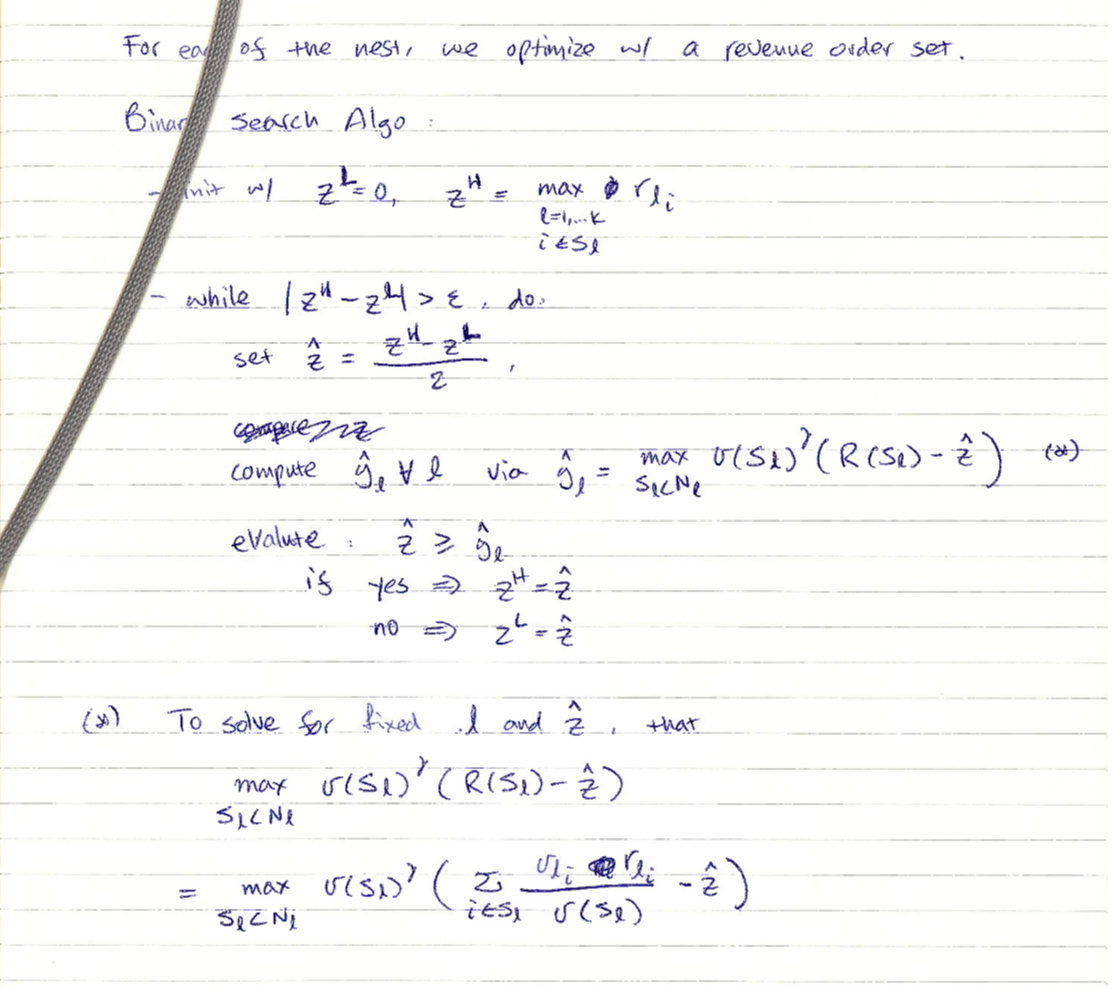 For ea of the nest, we optimize w/ a revenue order set.
Binar search Algo :
- init w/ z^L = 0, z^H = max r_{l_i}
l=1,...K
i ∈ S_l
- while |z^H - z^L| > ε, do:
set ẑ = (z^H - z^L) / 2 ,
compute ŷ_l ∀ l via ŷ_l = max_{S_l⊂N_l} v(S_l)^γ (R(S_l) - ẑ) (*)
evalute : ẑ ≥ ŷ_l
if yes ⇒ z^H = ẑ
no ⇒ z^L = ẑ
(*) To solve for fixed l and ẑ, that
max_{S_l⊂N_l} v(S_l)^γ (R(S_l) - ẑ)
= max_{S_l⊂N_l} v(S_l)^γ ( Σ_{i∈S_l} v_{l_i} r_{l_i} / v(S_l) - ẑ )